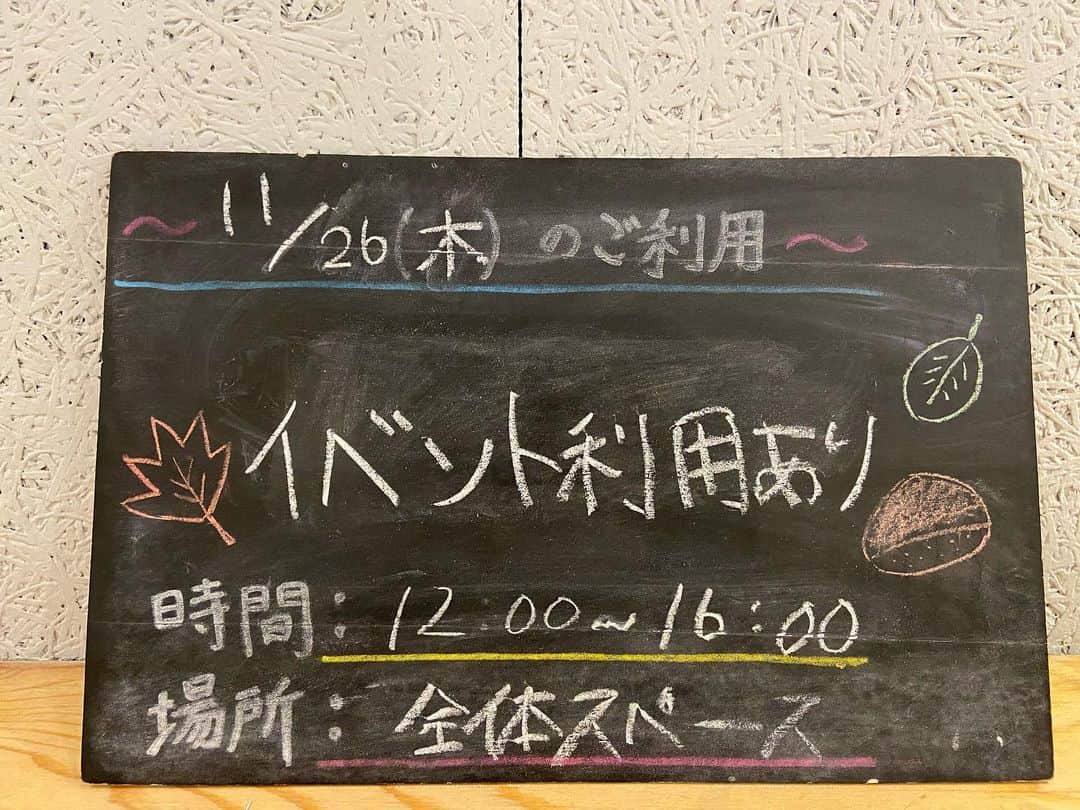 ～11/26(木)のご利用～
イベント利用あり
時間：12:00～16:00
場所：全体スペース